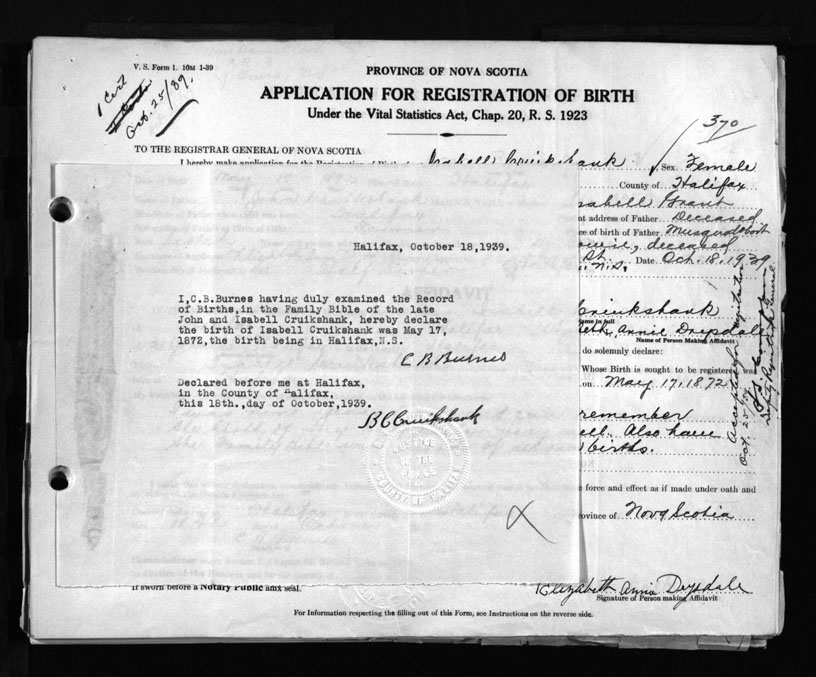 V. S. Form 1. 10M 1-39
1 Cert
Oct. 25/39.
PROVINCE OF NOVA SCOTIA
APPLICATION FOR REGISTRATION OF BIRTH
Under the Vital Statistics Act, Chap. 20, R. S. 1923
370
TO THE REGISTRAR GENERAL OF NOVA SCOTIA
I hereby make application for the Registration of Birth of Isabell Cruikshank Sex Female
County of Halifax
Isabell Grant
address of Father Deceased
ce of birth of Father Musquodoboit
deceased
St. Date Oct. 18, 1939
N.S.
Halifax, October 18,1939.
AFFIDAVIT
I,C.B.Burnes having duly examined the Record
of Births,in the Family Bible of the late
John and Isabell Cruikshank, hereby declare
the birth of Isabell Cruikshank was May 17,
1872,the birth being in Halifax,N.S.
C B Burnes
Declared before me at Halifax,
in the County of Halifax,
this 18th.,day of October,1939.
B C Cruikshank
JUSTICE
OF THE
Cruikshank
beth Annie Drysdale
Name of Person Making Affidavit
do solemnly declare:
Whose Birth is sought to be registered was
on May 17, 1872
remember
ell. Also have
births.
force and effect as if made under oath and
ovince of Nova Scotia
Accepted for registration
Oct. 25/39
Deputy Registrar General
If sworn before a Notary Public affix seal.
Elizabeth Annie Drysdale
Signature of Person making Affidavit
For Information respecting the filling out of this Form, see Instructions on the reverse side.